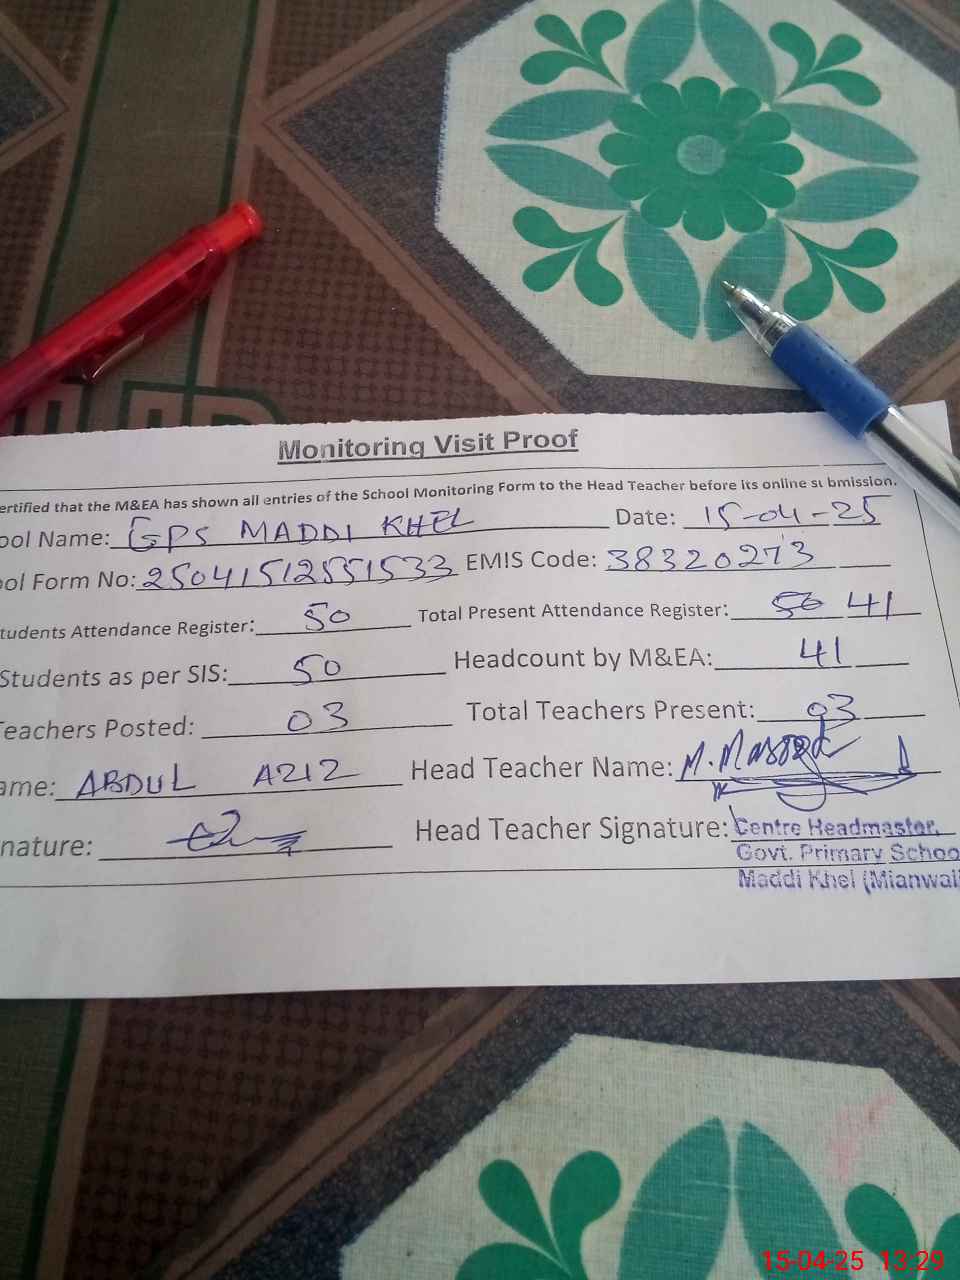 Monitoring Visit Proof
ertified that the M&EA has shown all entries of the School Monitoring Form to the Head Teacher before its online submission.
ool Name: GPS MADDI KHEL Date: 15-04-25
ool Form No: 25041512551533 EMIS Code: 38320273
tudents Attendance Register: 50 Total Present Attendance Register: 50 41
Students as per SIS: 50 Headcount by M&EA: 41
Teachers Posted: 03 Total Teachers Present: 03
ame: ABDUL AZIZ Head Teacher Name: M. Masood
nature: Head Teacher Signature:
Centre Headmaster,
Govt. Primary Schoo
Maddi Khel (Mianwali
15-04-25 13:29